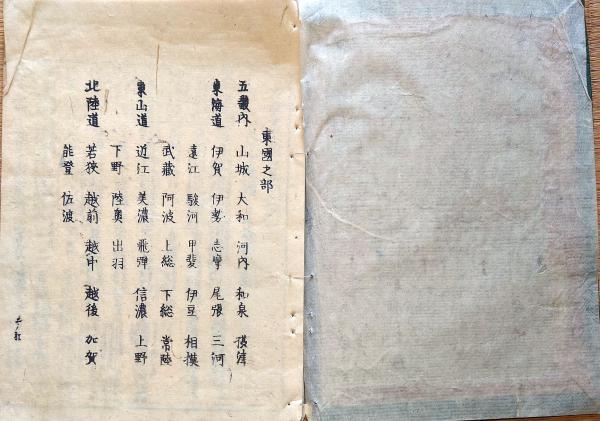 東國之部
五畿内 山城 大和 河内 和泉 摂津
東海道 伊賀 伊勢 志摩 尾張 三河
遠江 駿河 甲斐 伊豆 相摸
武藏 阿波 上総 下総 常陸
東山道 近江 美濃 飛騨 信濃 上野
下野 陸奥 出羽
北陸道 若狭 越前 越中 越後 加賀
能登 佐渡